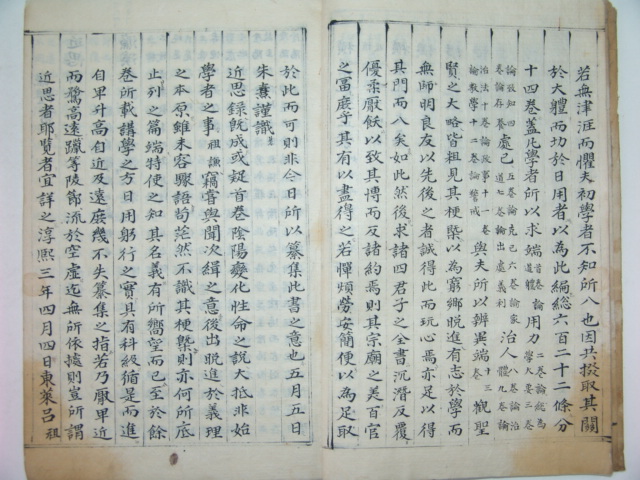 若無津涯而懼夫初學者不知所入也因共掇取其關
於大體而切於日用者以為此編総六百二十二條分
十四卷盖凡學者所以求端首卷論道體用力二卷論総為學大要三卷
論致知四卷論存養處己五卷論克己六卷論家道七卷論出處義利治人八卷論治體九卷論
治法十卷論政事十一卷論教學十二卷論警戒與夫所以辨異端十三卷觀聖
賢之大略皆粗見其梗槩以為窮鄉晩進有志於學而
無師明良友以先後之者誠得此而玩心焉亦足以得
其門而入矣如此然後求諸四君子之全書沉潛反覆
優柔厭飫以致其博而反諸約焉則其宗廟之美百官
之冨庶乎其有以盡得之若憚煩勞安簡便以為足取
於此而可則非今日所以纂集此書之意也五月五日
朱熹謹識
近思録旣成或疑首卷陰陽變化性命之說大抵非始
學者之事祖謙竊嘗與聞次緝之意後出晩進於義理
之本原雖未容驟語苟茫然不識其梗槩則亦何所底
止列之篇端特使之知其名義有所嚮望而已至於餘
卷所載講學之方日用躬行之實具有科級循是而進
自卑升高自近及遠庶幾不失纂集之指若乃厭卑近
而騖高遠躐等陵節流於空虛迄無所依據則豈所謂
近思者耶覽者宜詳之淳熙三年四月四日東萊呂祖